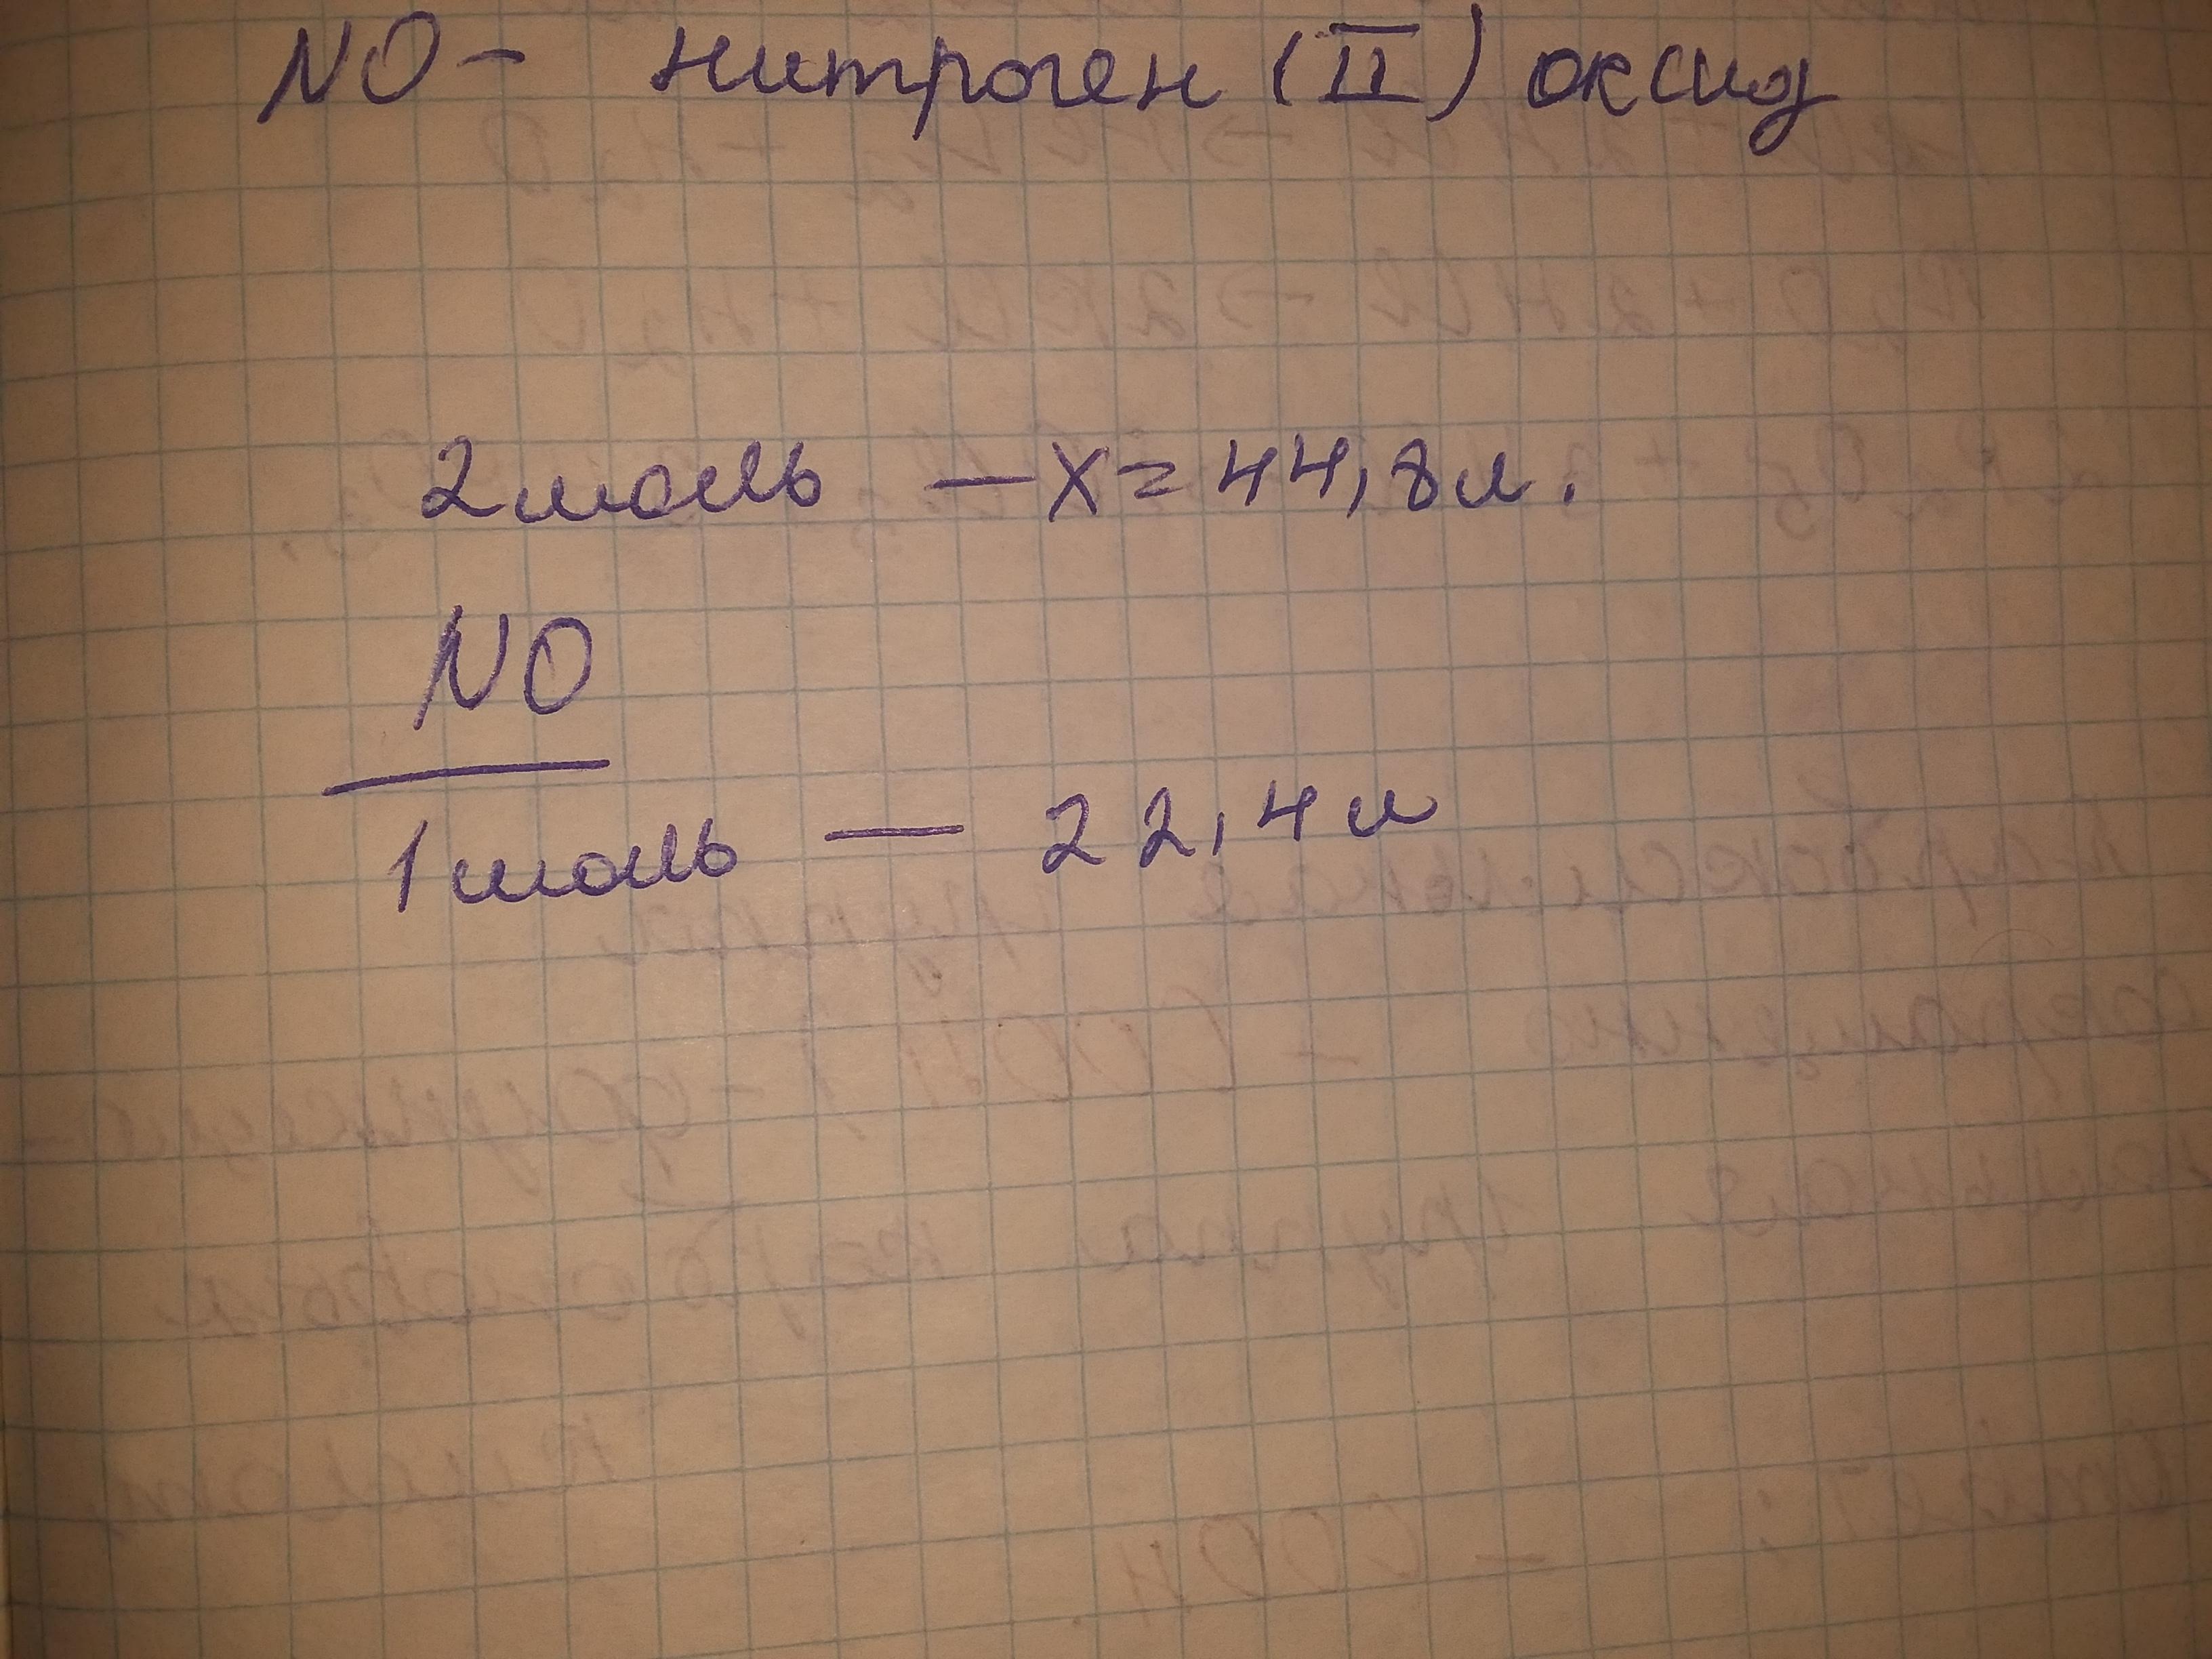 NO - нитроген (II) оксид
2моль — X = 44,8л.
NO
1моль — 22,4л